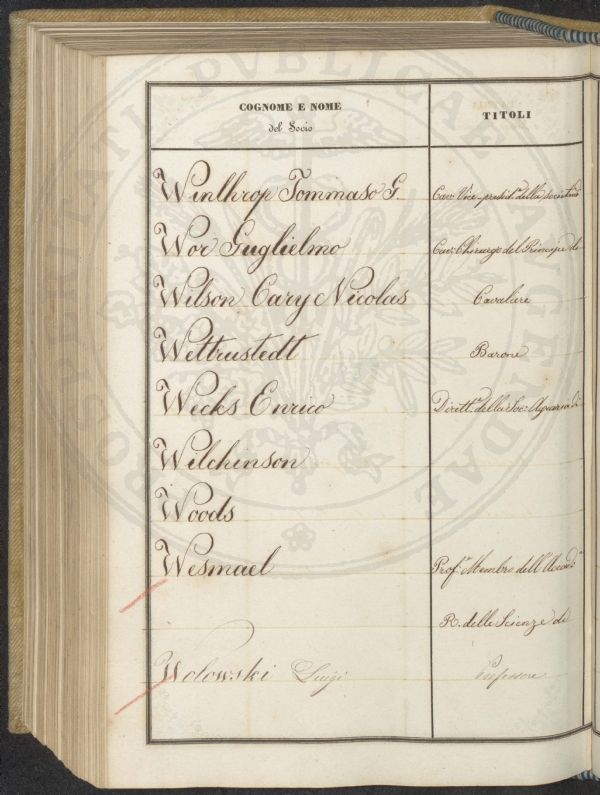 COGNOME E NOME
del Socio
TITOLI
Winthrop Tommaso G. Cav. Vice-presid. della
Wor Guglielmo Cav. Chirurgo del Principe di
Wilson Cary Nicolas Cavaliere
Wettrustedt Barone
Weeks Enrico Dirett.e della Soc. Agraria di
Wilchinson
Woods
Wesmael Prof.e Membro dell'Accad.a
R. delle Scienze di
Wolowski Luigi Professore
PUBLICAE